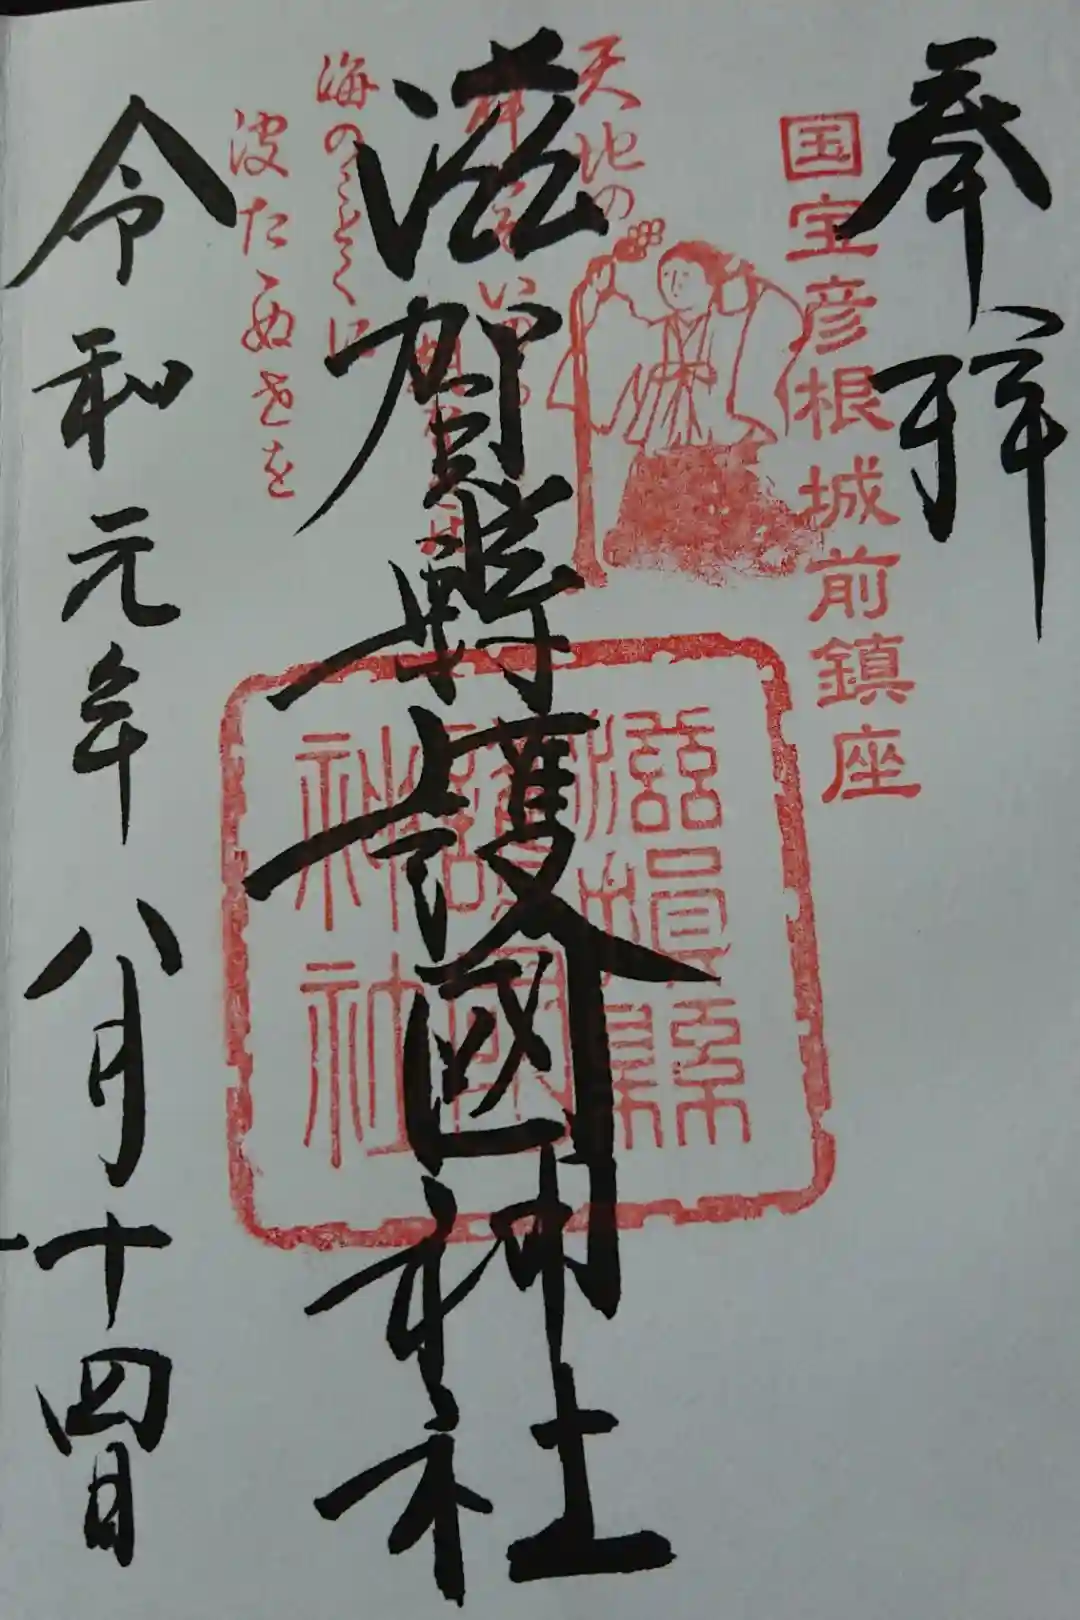 奉拝
国宝彦根城前鎮座
天地の
滋賀縣護國神社
海のごとくに
波たゝぬ世を
滋賀縣護國神社
令和元年八月十四日